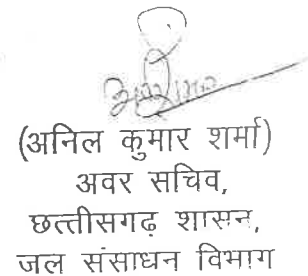 (अनिल कुमार शर्मा)
अवर सचिव,
छत्तीसगढ़ शासन,
जल संसाधन विभाग